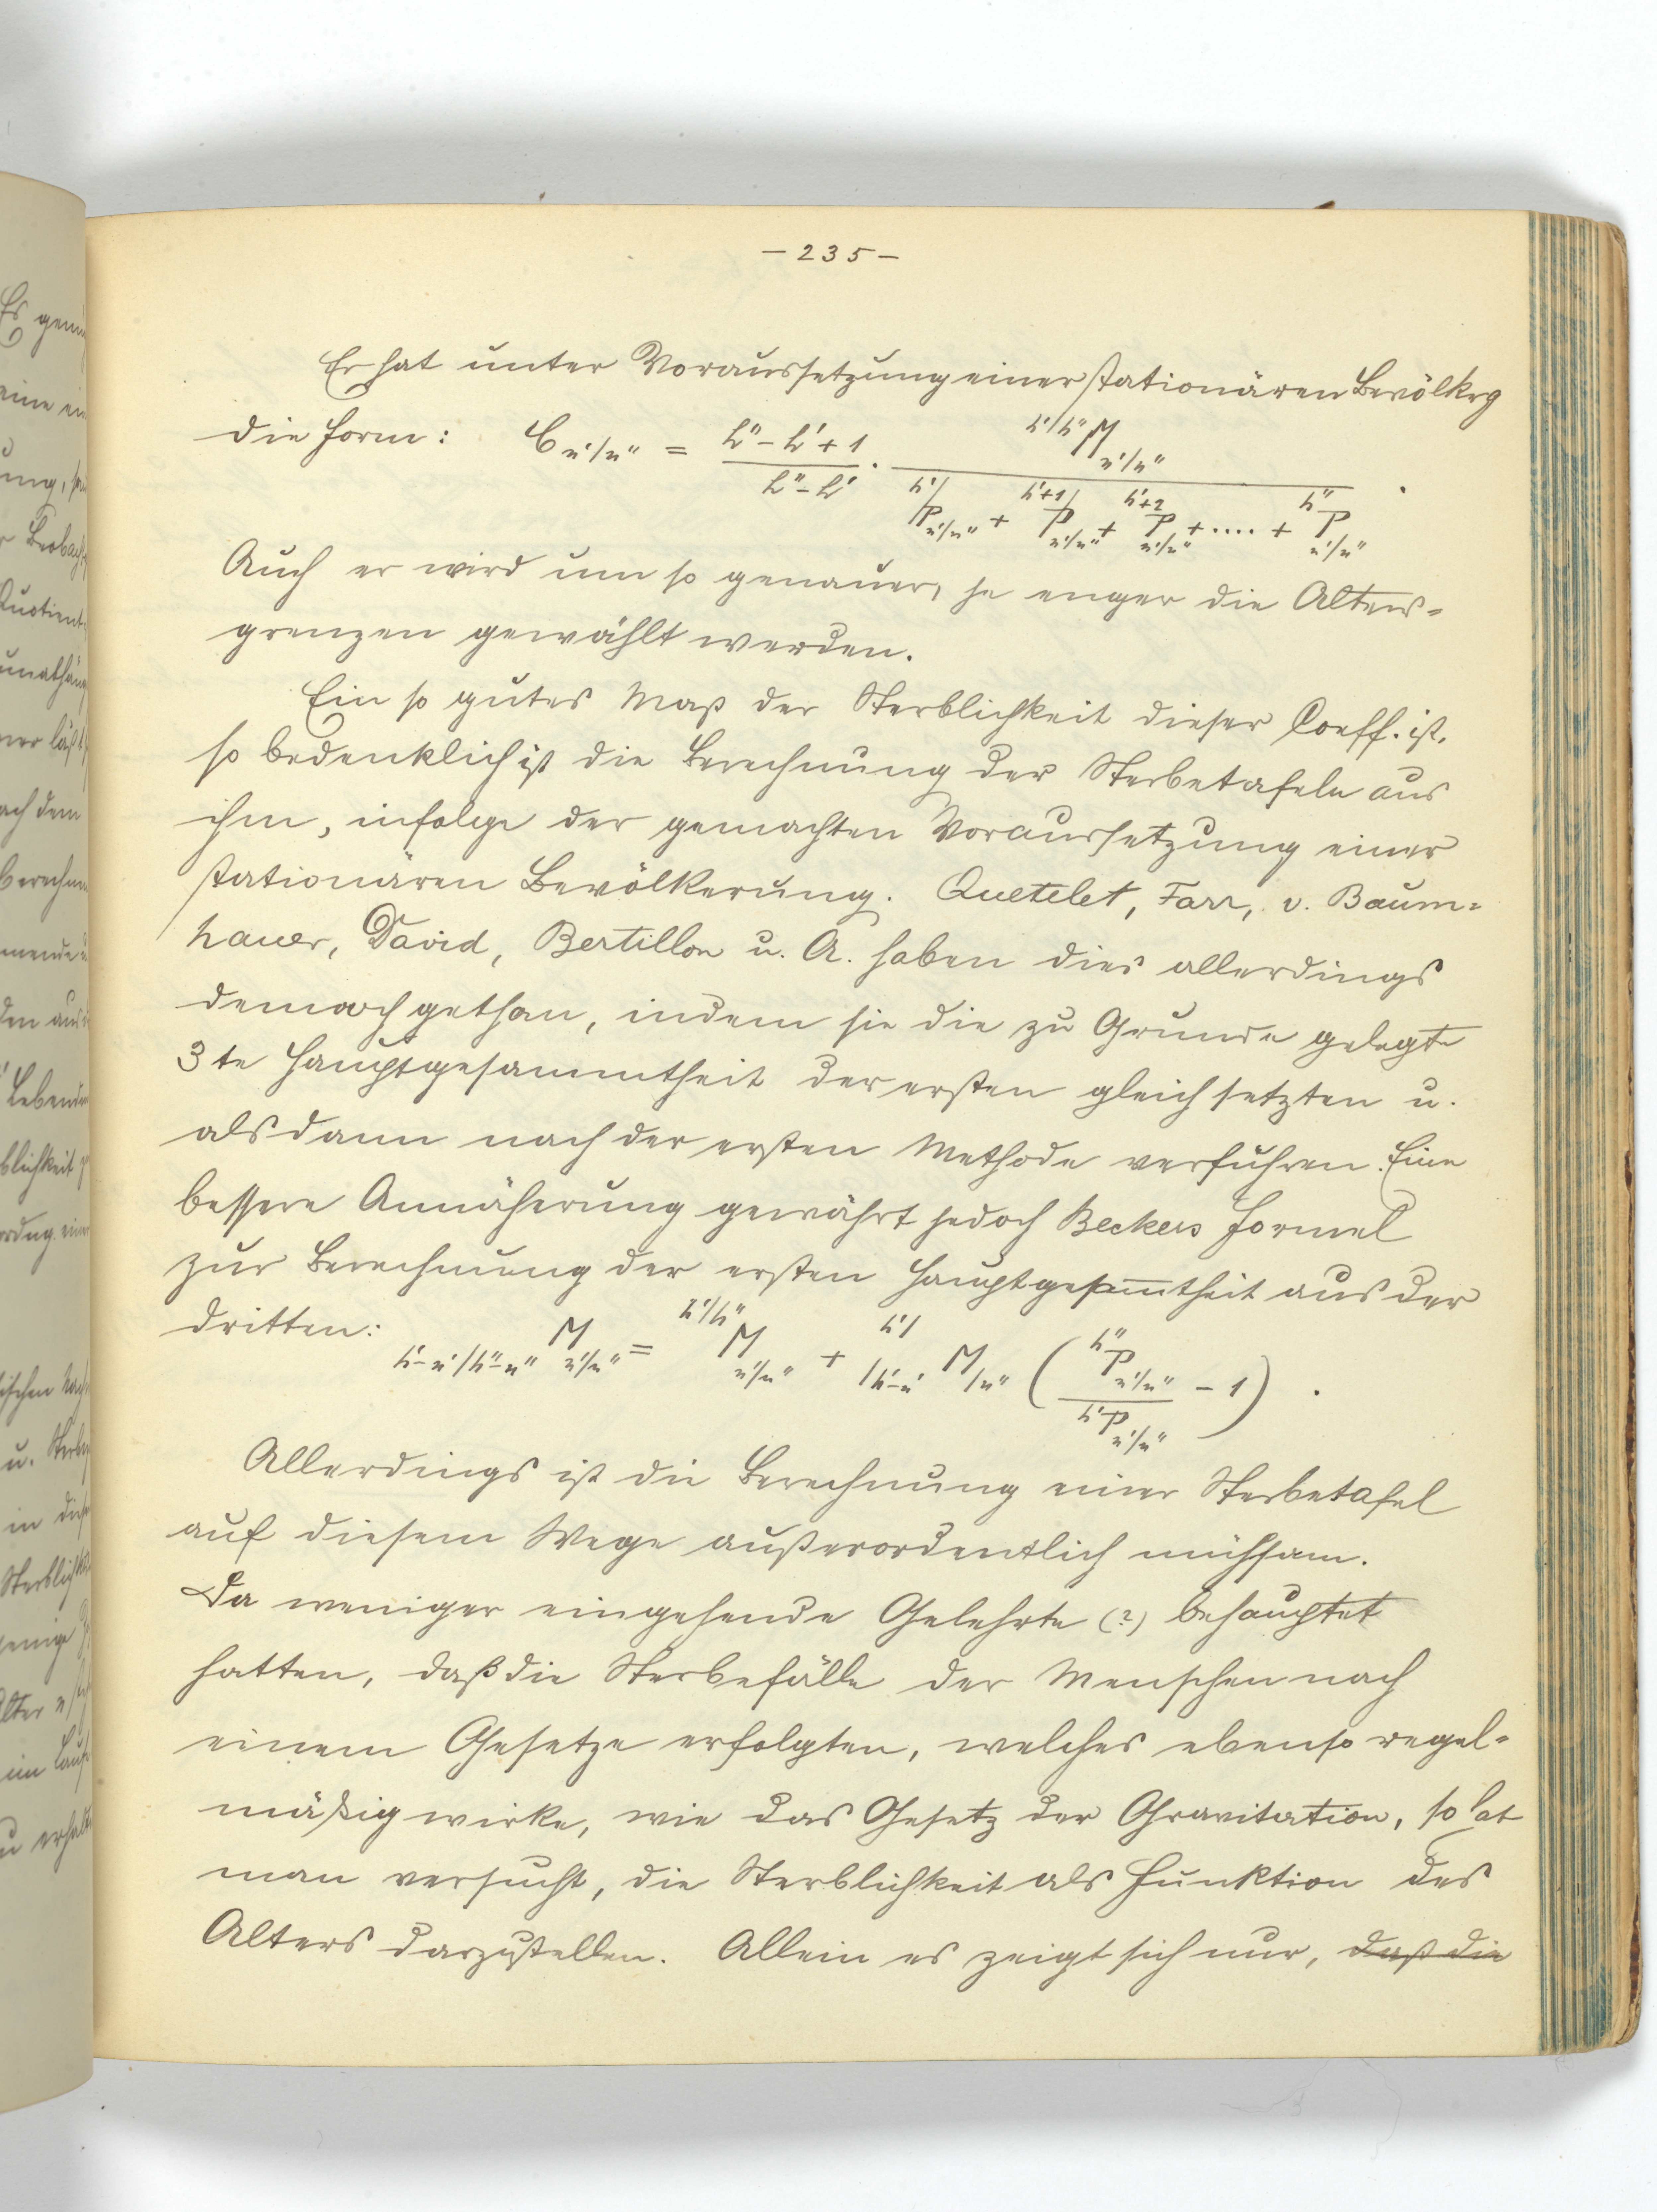 – 235 –
Er hat unter Voraussetzung einer stationären Bevölkrg
die Form: C n'/n'' = (h'' – h' + 1)/(h'' – h') · (h'/h'' M n'/n'')/(h'/ P n'/n'' + h'+1/ P n'/n'' + h'+2 P n'/n'' + .... + h'' P n'/n'') .
Auch er wird um so genauer, je enger die Alters=
grenzen gewählt werden.
Ein so gutes Maß der Sterblichkeit dieser Coeff. ist,
so bedenklich ist die Berechnung der Sterbetafeln aus
ihm, infolge der gemachten Voraussetzung einer
stationären Bevölkerung. Quetelet, Farr, v. Baum=
hauer, David, Bertillon u. A. haben dies allerdings
dennoch gethan, indem sie die zu Grunde gelegte
3te Hauptgesammtheit der ersten gleich setzten u.
alsdann nach der ersten Methode verfuhren. Eine
bessere Annäherung gewährt jedoch Beckers Formel
zur Berechnung der ersten Hauptgesam̅theit aus der
dritten: h'–n'/h''–n'' M n'/n'' = h'/h'' M n'/n'' + h'/ /h'–n' M /n'' ( h''P n'/n'' / h'P n'/n'' – 1 ) .
Allerdings ist die Berechnung einer Sterbetafel
auf diesem Wege außerordentlich mühsam.
Da weniger eingehende Gelehrte (?) behauptet
hatten, daß die Sterbefälle der Menschen nach
einem Gesetze erfolgten, welches ebenso regel=
mäßig wirke, wie das Gesetz der Gravitation, so hat
man versucht, die Sterblichkeit als Funktion des
Alters darzustellen. Allein es zeigt sich nur, daß die